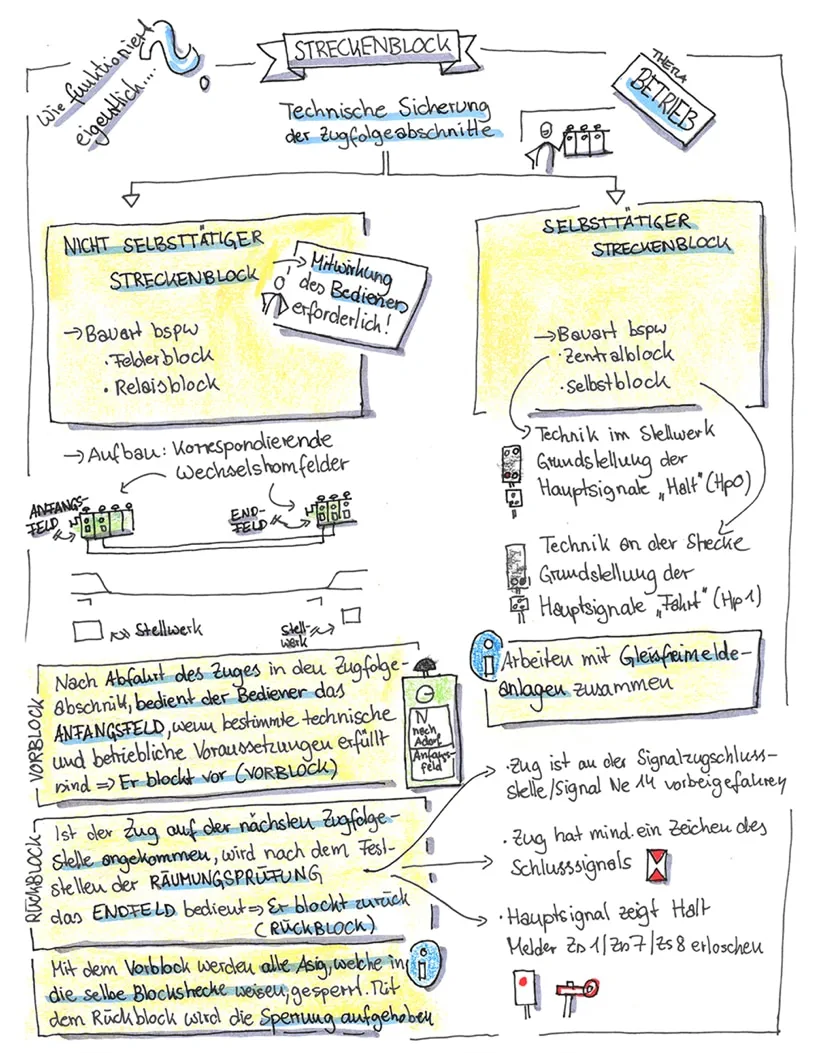 Wie funktioniert
eigentlich....
?
STRECKENBLOCK
THEMA
BETRIEB
Technische Sicherung
der Zugfolgeabschnitte
NICHT SELBSTTÄTIGER
STRECKENBLOCK
→ Mitwirkung
des Bedieners
erforderlich!
→ Bauart bspw
· Felderblock
· Relaisblock
→ Aufbau: Korrespondierende
Wechselstromfelder
ANFANGS-
FELD
END-
FELD
Stellwerk
Stell-
werk
VORBLOCK
Nach Abfahrt des Zuges in den Zugfolge-
abschnitt, bedient der Bediener das
ANFANGSFELD, wenn bestimmte technische
und betriebliche Voraussetzungen erfüllt
sind => Er blockt vor (VORBLOCK)
N
nach
Adorf
Anfangs-
feld
RÜCKBLOCK
Ist der Zug auf der nächsten Zugfolge-
stelle angekommen, wird nach dem Fest-
stellen der RÄUMUNGSPRÜFUNG
das ENDFELD bedient => Er blockt zurück
(RÜCKBLOCK)
Mit dem Vorblock werden alle Asig, welche in
die selbe Blockstrecke weisen, gesperrt. Mit
dem Rückblock wird die Sperrung aufgehoben
i
SELBSTTÄTIGER
STRECKENBLOCK
→ Bauart bspw
· Zentralblock
· Selbstblock
Technik im Stellwerk
Grundstellung der
Hauptsignale „Halt" (Hp0)
Technik an der Strecke
Grundstellung der
Hauptsignale „Fahrt" (Hp1)
i
Arbeiten mit Gleisfreimelde-
anlagen zusammen
· Zug ist an der Signalzugschluss-
stelle/Signal Ne 14 vorbeigefahren
· Zug hat mind. ein Zeichen des
Schlusssignals
· Hauptsignal zeigt Halt
Melder Zs1/Zs7/Zs8 erloschen